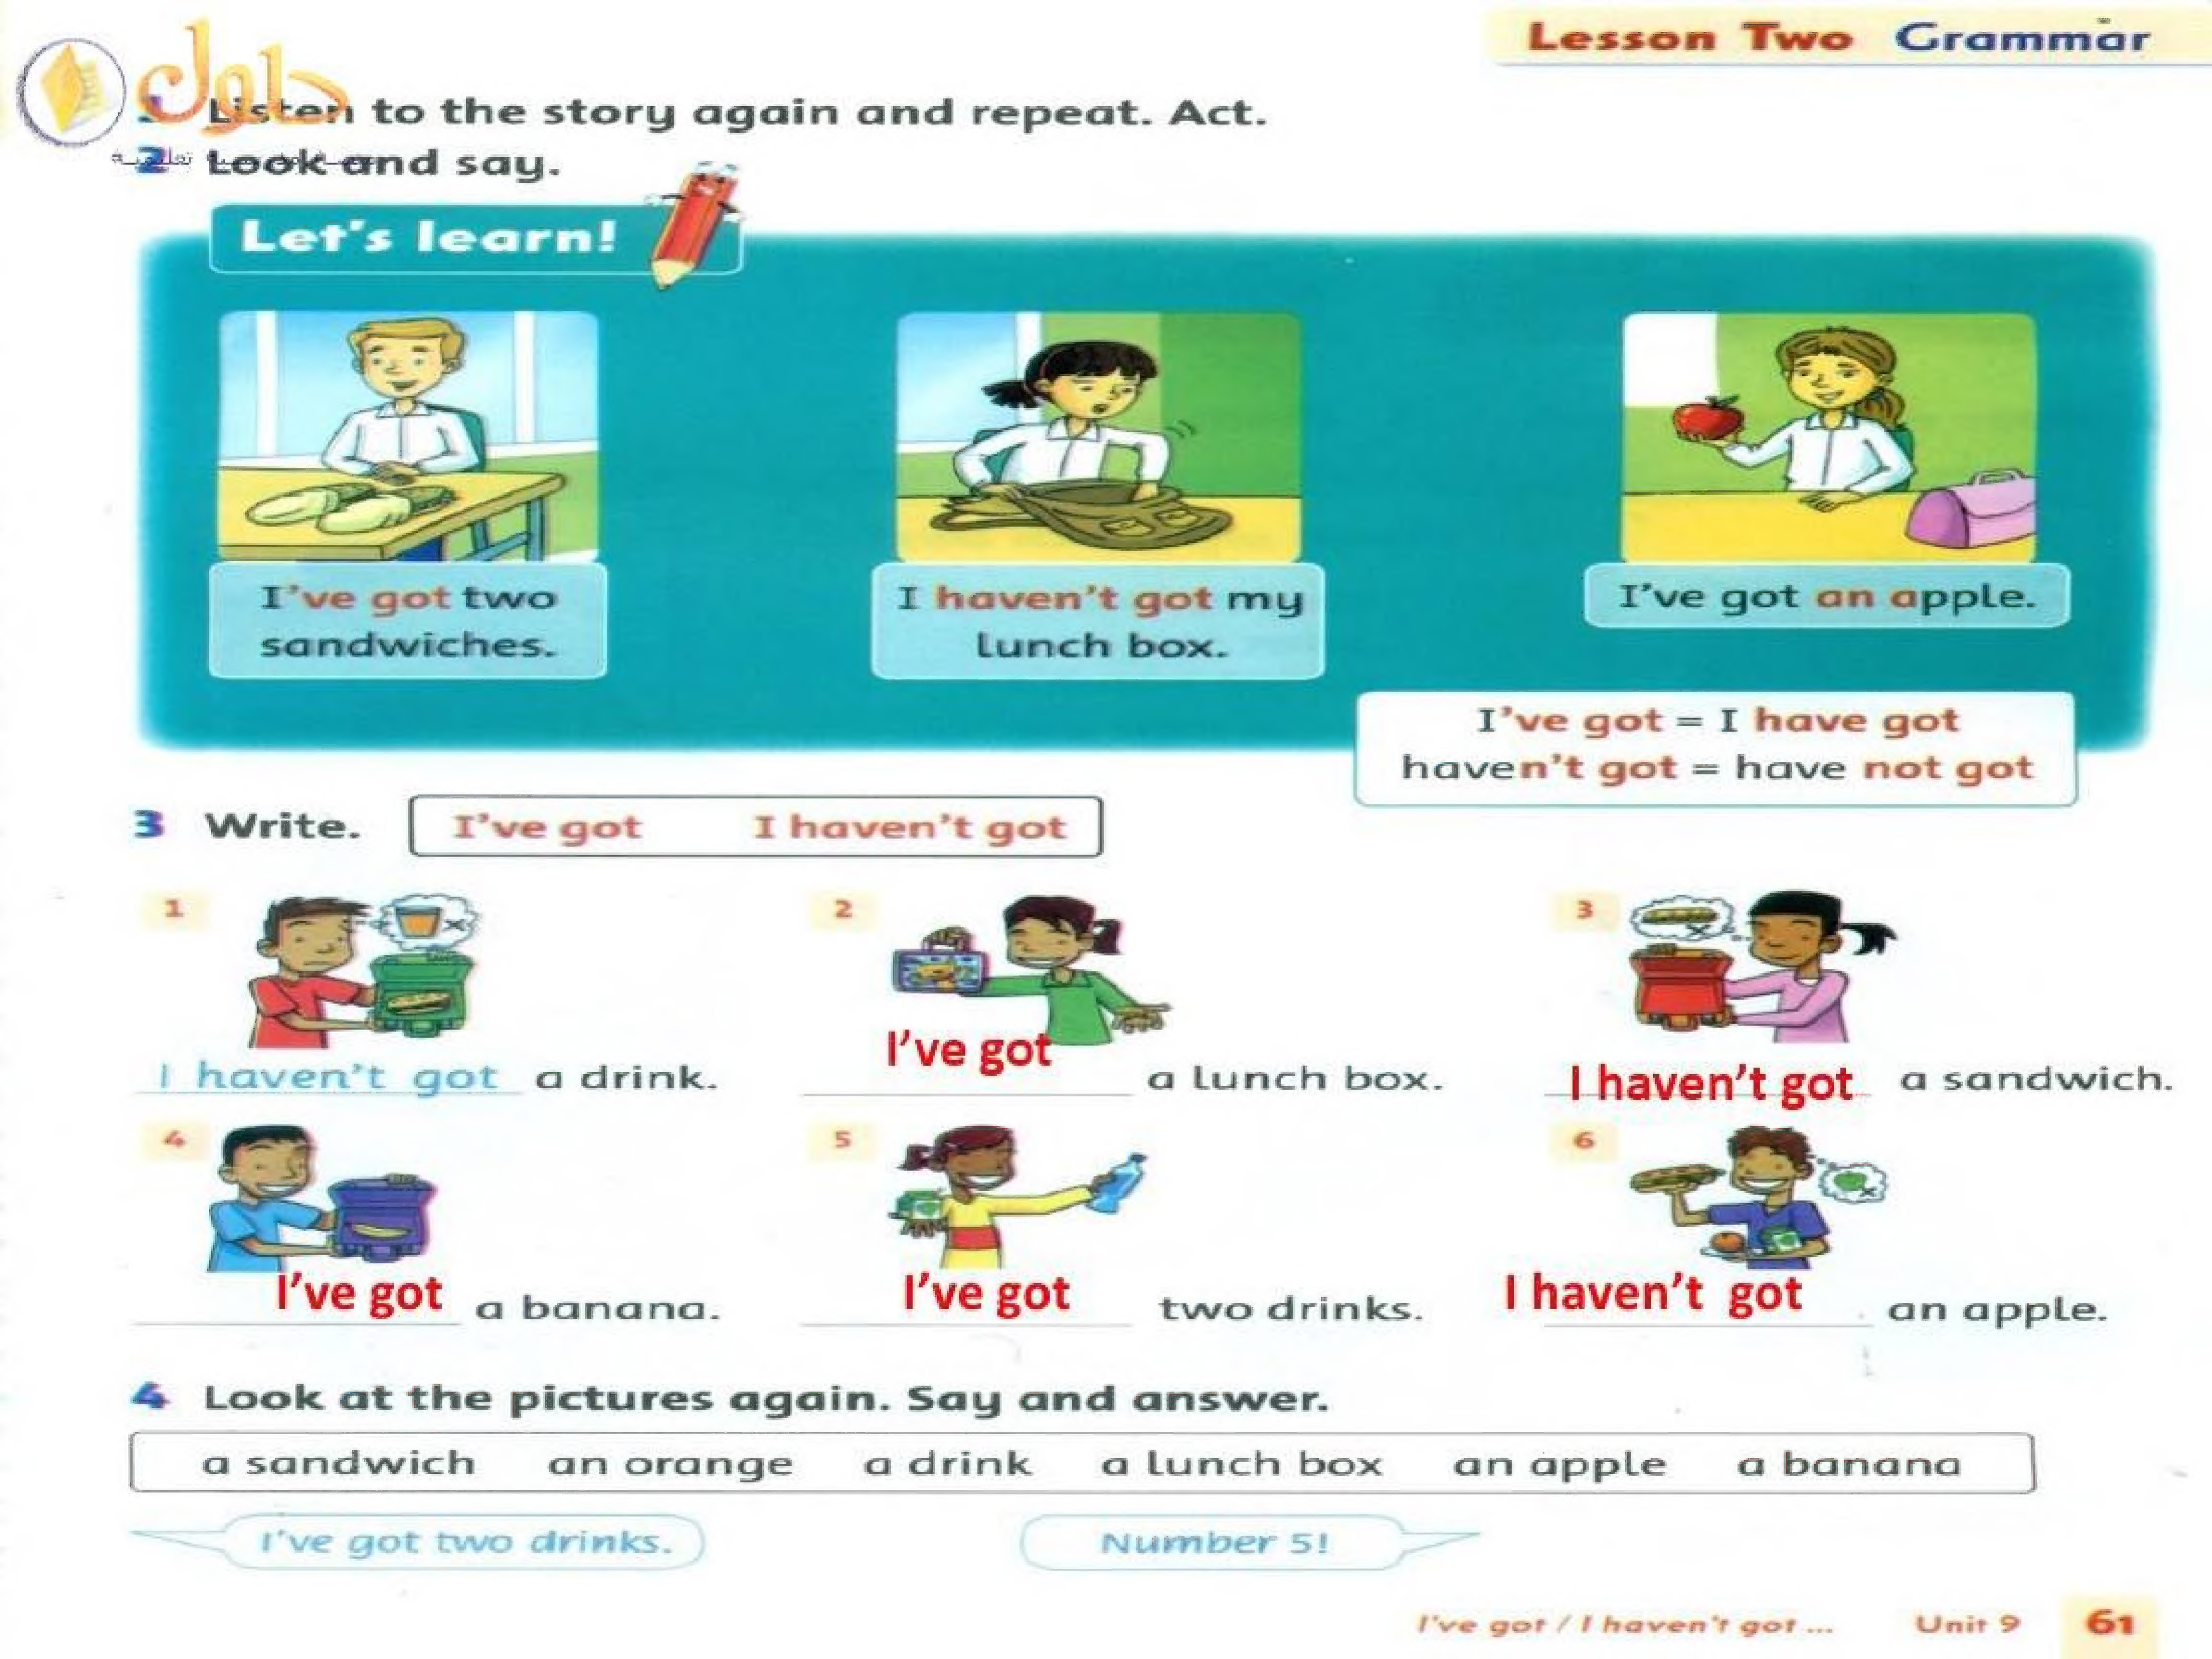 Lesson Two Grammar
حلول
1 Listen to the story again and repeat. Act.
2 Look and say.
Let's learn!
I've got two
sandwiches.
I haven't got my
lunch box.
I've got an apple.
I've got = I have got
haven't got = have not got
3 Write. I've got I haven't got
1
2
3
I haven't got a drink.
I've got a lunch box.
I haven't got a sandwich.
4
5
6
I've got a banana.
I've got two drinks.
I haven't got an apple.
4 Look at the pictures again. Say and answer.
a sandwich an orange a drink a lunch box an apple a banana
I've got two drinks.
Number 5!
I've got / I haven't got ... Unit 9 61